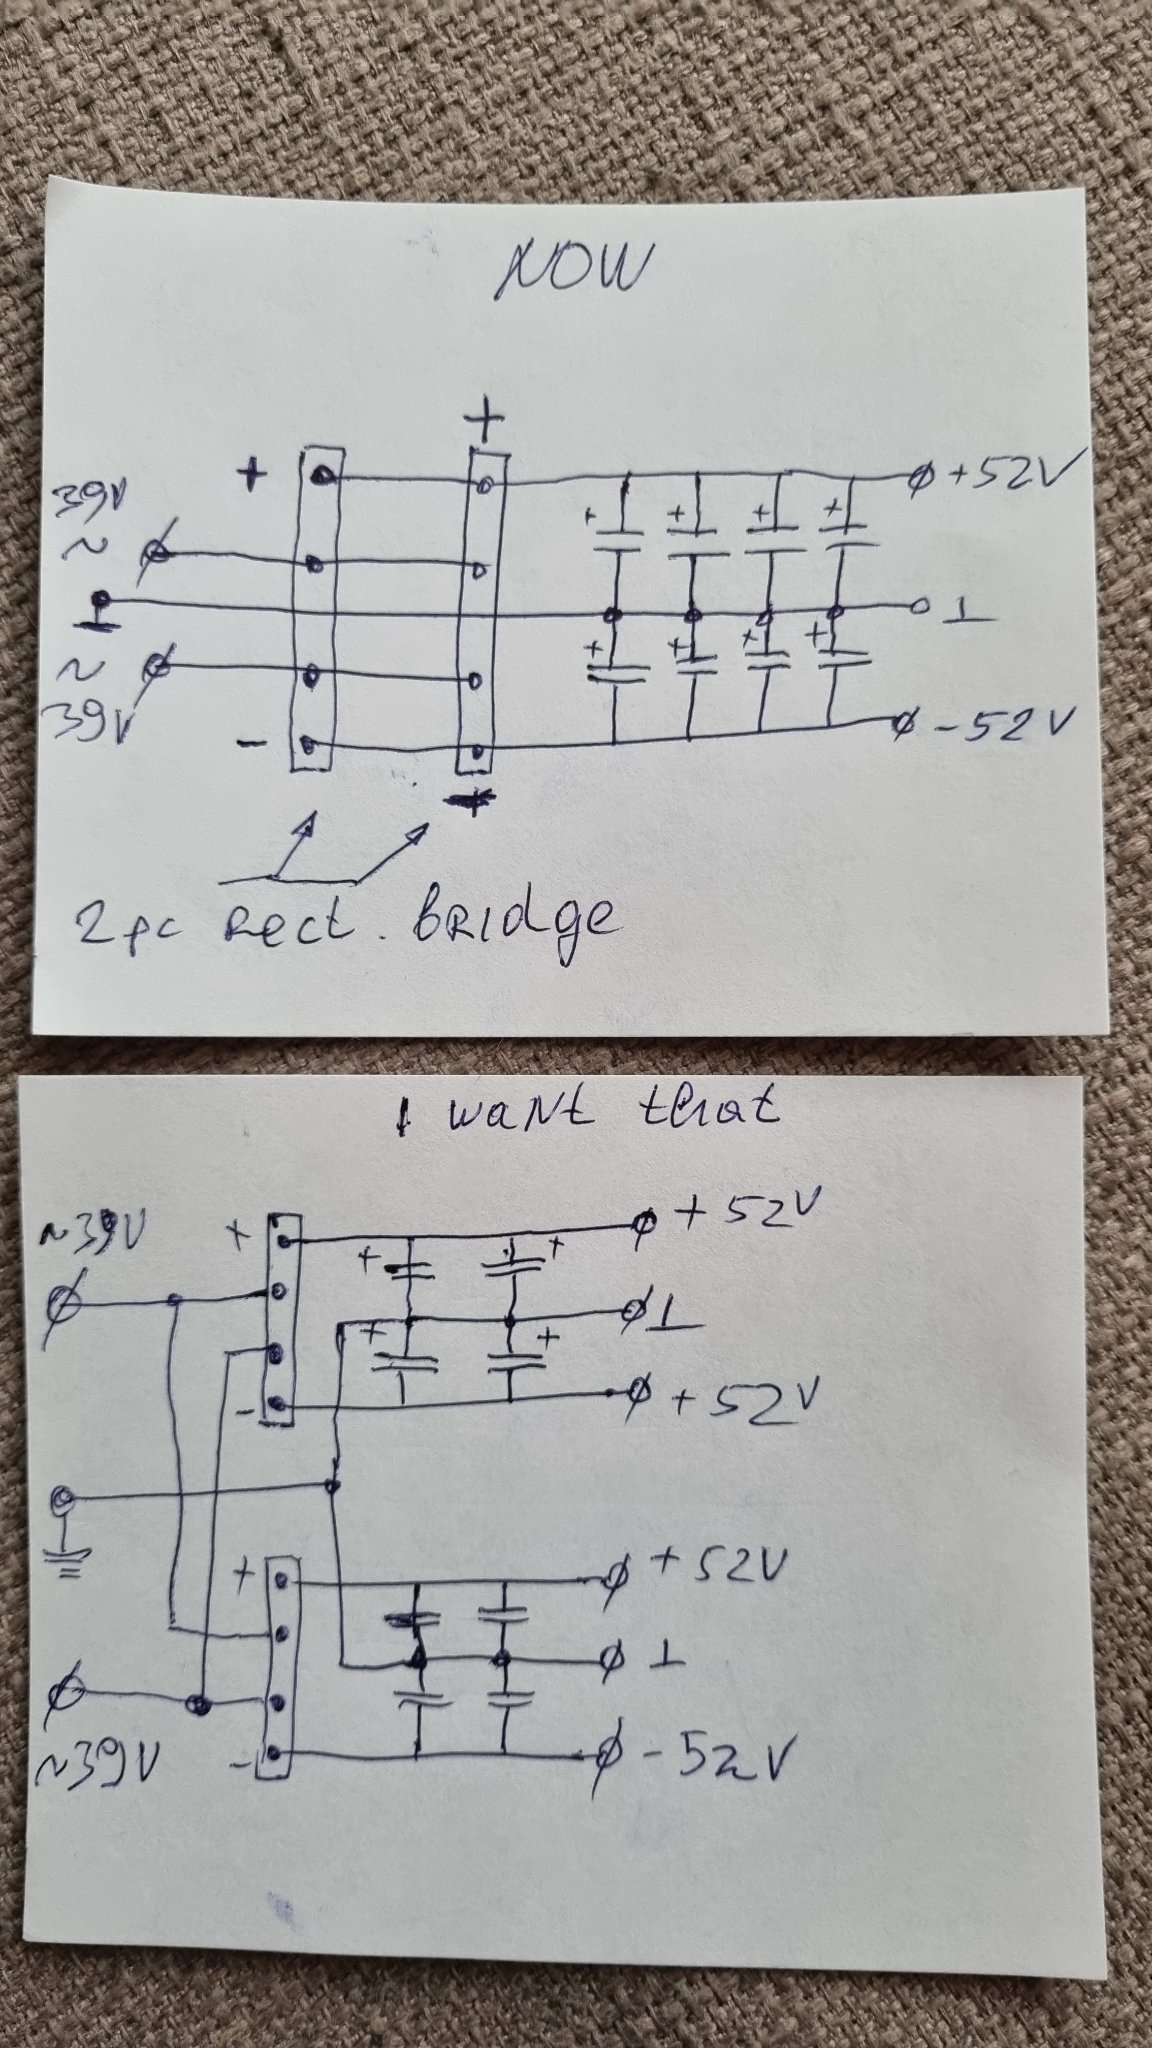 NOW
+
+
+52V
39V
~
+ + + +
⊥
⊥
~
+ + + +
39V
-
-52V
2pc Rect. bridge
I want that
~39V
+
+52V
+ +
⊥
+ +
-
+52V
+
+52V
⊥
~39V
-
-52V